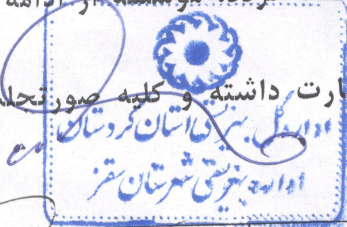 از ادامه
ارت داشته و کلیه صورتجلس
اداره کل بهزیستی استان کردستان
اداره بهزیستی شهرستان سقز